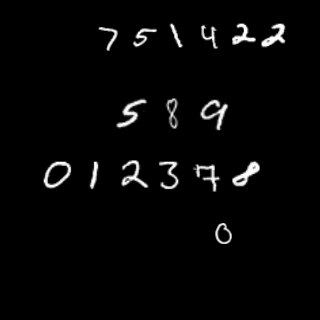 751422
589
012378
0